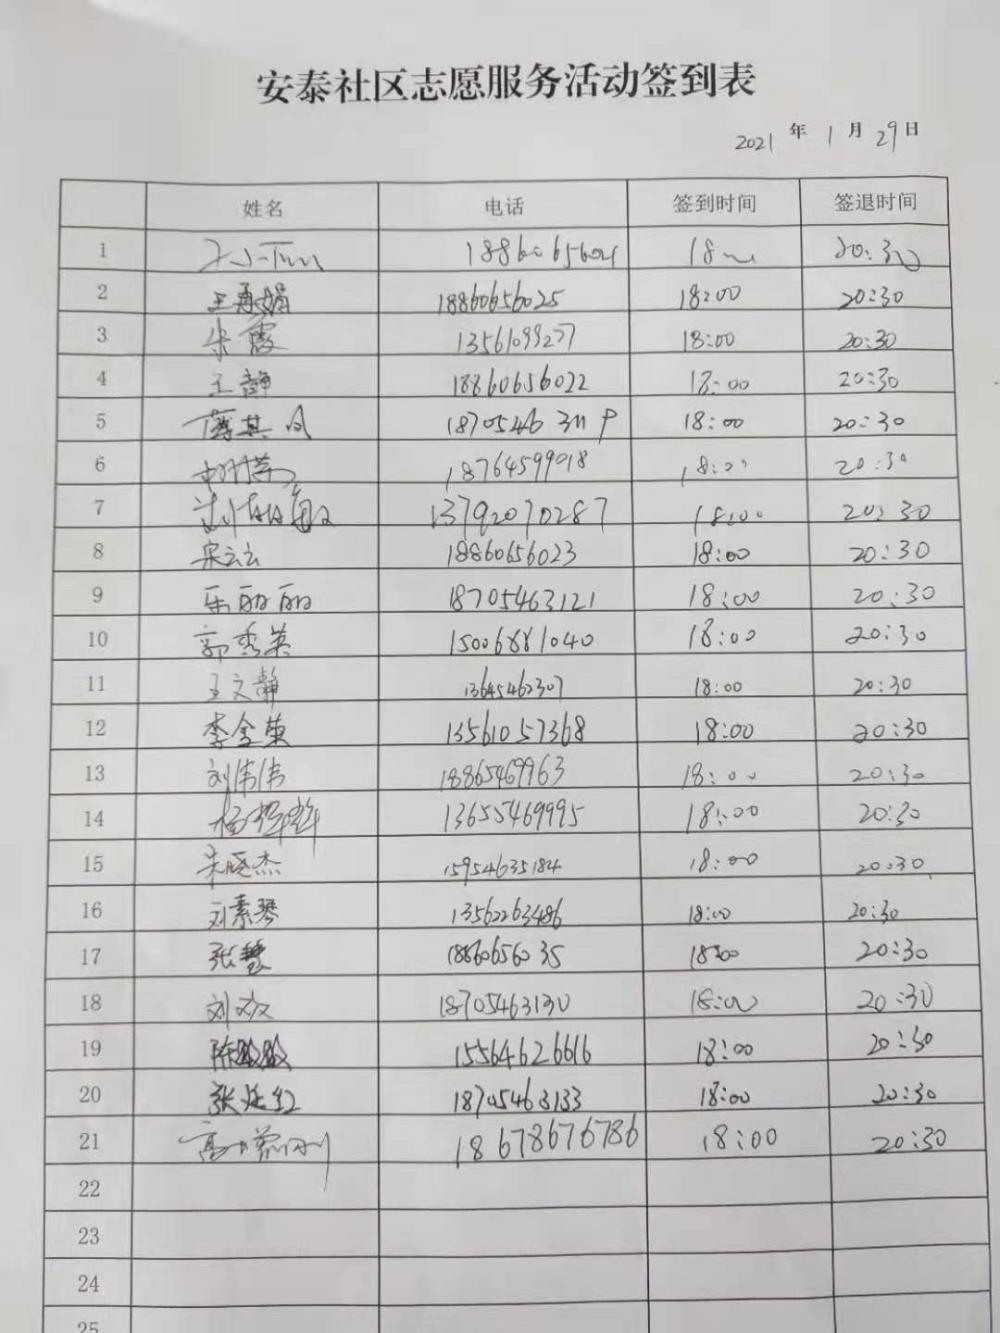 安泰社区志愿服务活动签到表
2021 年 1 月 29 日
姓名 电话 签到时间 签退时间
1 20:30
2 王承娟 18860656025 18:00 20:30
3 宋霞 13561099277 18:00 20:30
4 王静 18860656022 18:00 20:30
5 18:00 20:30
6 18764599018 18:00 20:30
7 13792070287 18:00 20:30
8 宋云云 18860656023 18:00 20:30
9 乐丽丽 18705463121 18:00 20:30
10 郭秀英 15006881040 18:00 20:30
11 王文静 13645462307 18:00 20:30
12 李金英 13561057368 18:00 20:30
13 刘伟伟 18865469963 18:00 20:30
14 13655469995 18:00 20:30
15 宋晓杰 15954635184 18:00 20:30
16 刘素琴 13562263486 18:00 20:30
17 张慧 18860656035 18:00 20:30
18 刘双 18705463130 18:00 20:30
19 陈 15564626616 18:00 20:30
20 张红 18705463133 18:00 20:30
21 高 18678676786 18:00 20:30
22
23
24
25